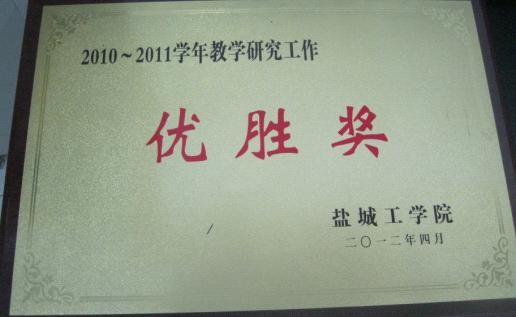 2010～2011学年教学研究工作
优胜奖
盐城工学院
二〇一二年四月